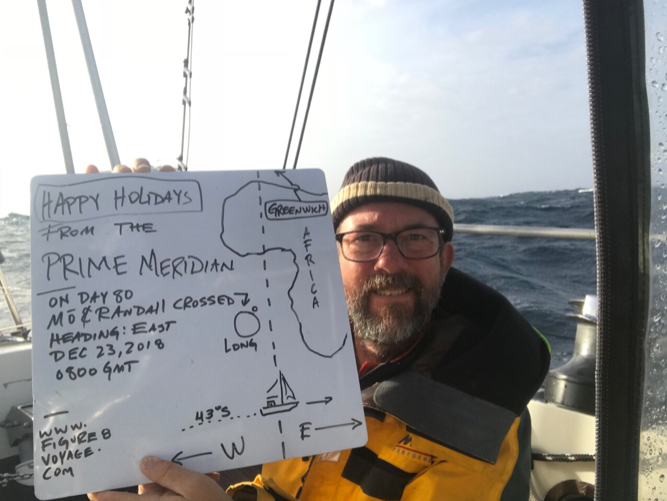 HAPPY HOLIDAYS
FROM THE
PRIME MERIDIAN
ON DAY 80
MŌ & RANDALL CROSSED
HEADING: EAST
DEC 23, 2018
0800 GMT
0°
LONG
GREENWICH
AFRICA
43°S
W
E
WWW.
FIGURE8
VOYAGE.
COM